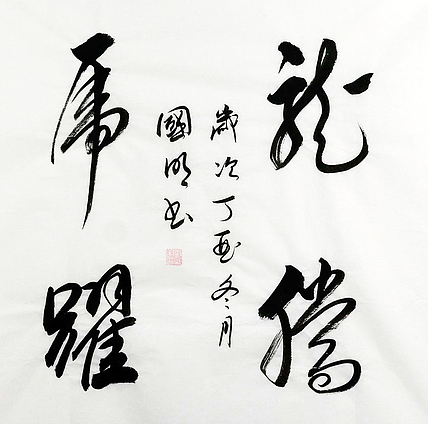 龍騰
歲次丁酉冬月
國明書
虎躍